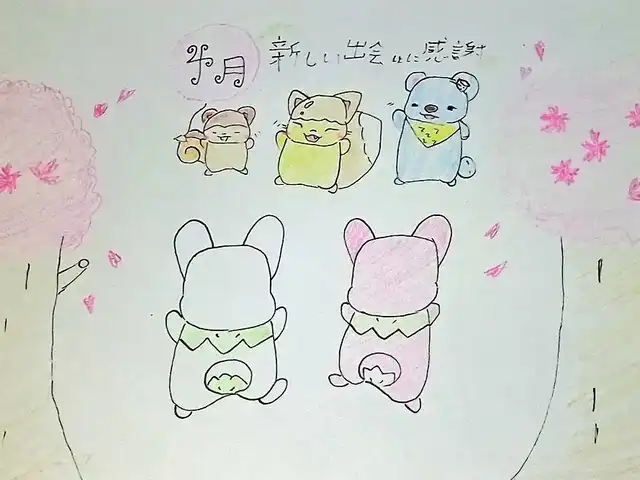 4月 新しい出会いに感謝